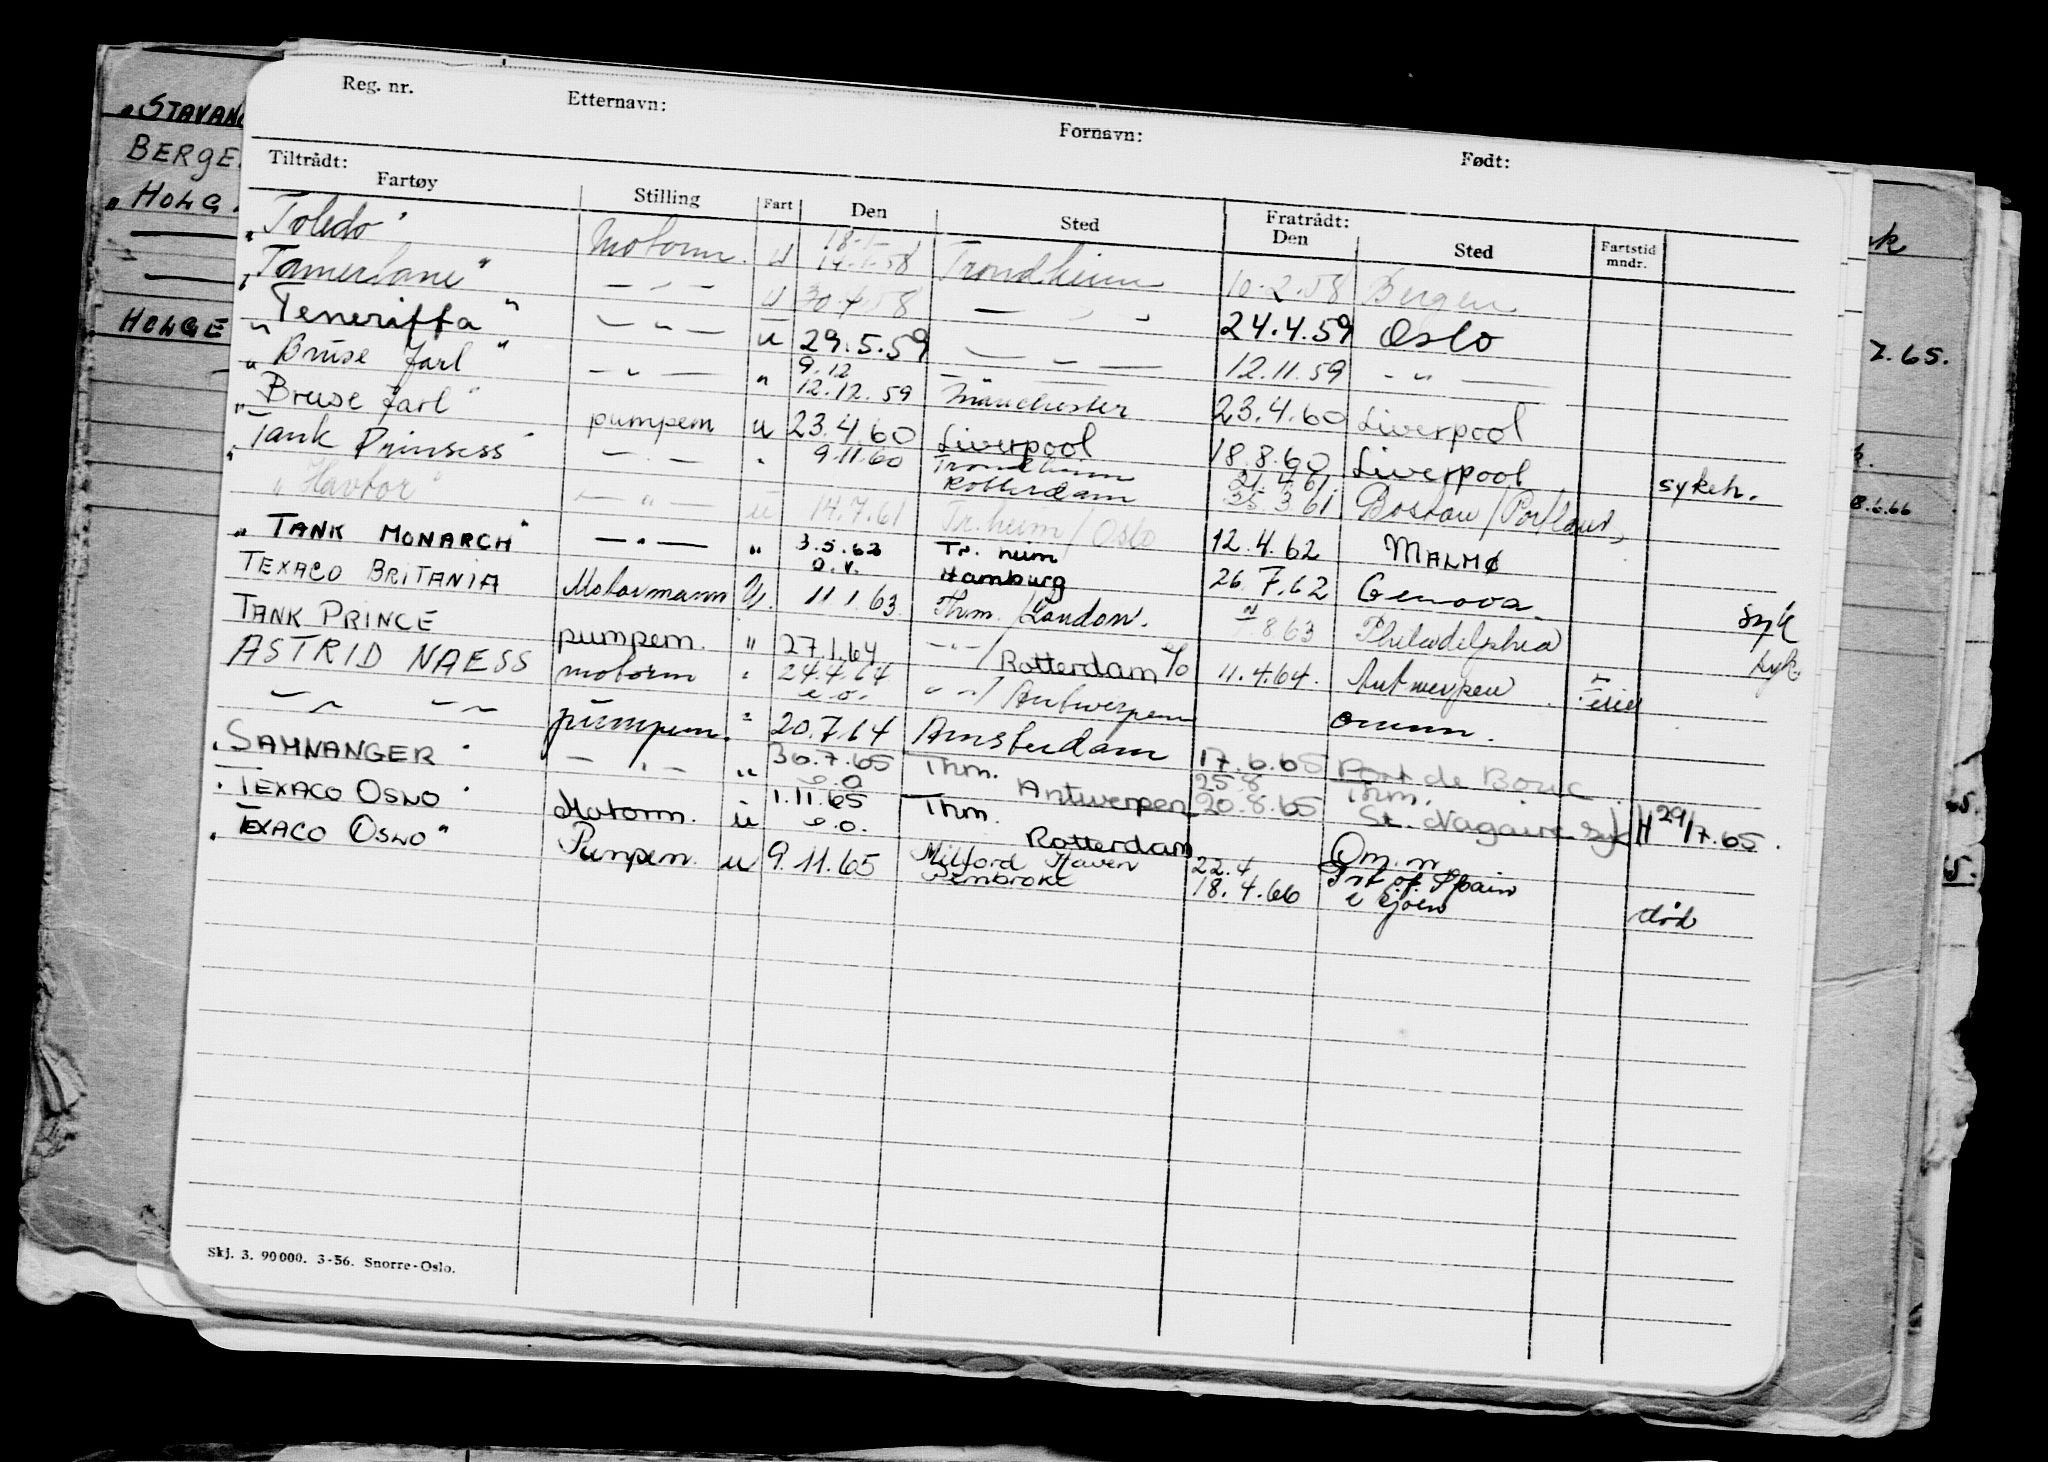 Reg. nr. Etternavn: Fornavn: Født:
Tiltrådt: Fratrådt:
Fartøy Stilling Fart Den Sted Den Sted Fartstid mndr.
"Toledo" Motorm. u 18.1. 14.1.58 Trondheim 10.2.58 Bergen
"Tamerlane" — " — u 30.4.58 — " — 24.4.59 Oslo
"Teneriffa" — " — u 29.5.59 — " — 12.11.59 — " —
"Bruse Jarl" — " — " 9.12 12.12.59 Manchester 23.4.60 Liverpool
"Bruse Jarl" pumpem u 23.4.60 Liverpool 18.8.60 Liverpool sykeh.
"Tank Prinsess" — " — " 9.11.60 Trondheim Rotterdam 21.4.61 25.3.61 Boston / Portland,
"Havtor" — " — u 14.7.61 Tr.heim / Oslo 12.4.62 MALMØ
"TANK MONARCH" — " — " 3.5.62 o.v. Tr. heim Hamburg 26.7.62 Genova syk
TEXACO BRITANIA Motormann U. 11.1.63 Thm. / London. 8.63 Philadelphia syk.
TANK PRINCE pumpem. " 27.1.64 — " — / Rotterdam 11.4.64. Antwerpen
ASTRID NAESS motorm " 24.4.64 e.o. " " / Antwerpen omm.
— " — — " — pumpem. " 20.7.64 Amsterdam 17.6.65 Port de Bouc
"SAMNANGER" — " — " 30.7.65 e.o Thm. Antwerpen 25.8 20.8.65 Thm. St. Nazaire syk H 29/7.65.
"TEXACO OSLO" Motorm. u 1.11.65 e.o. Thm. Rotterdam Om.m
"TEXACO OSLO" Pumpem. u 9.11.65 Milford Haven Pembroke 22.4 18.4.66 Prt of Spain i sjøen død
Skj. 3. 90000. 3-56. Snorre-Oslo.
"STAVANG
BERGE
"HOLG
HOLGE
7.65.
8.6.66